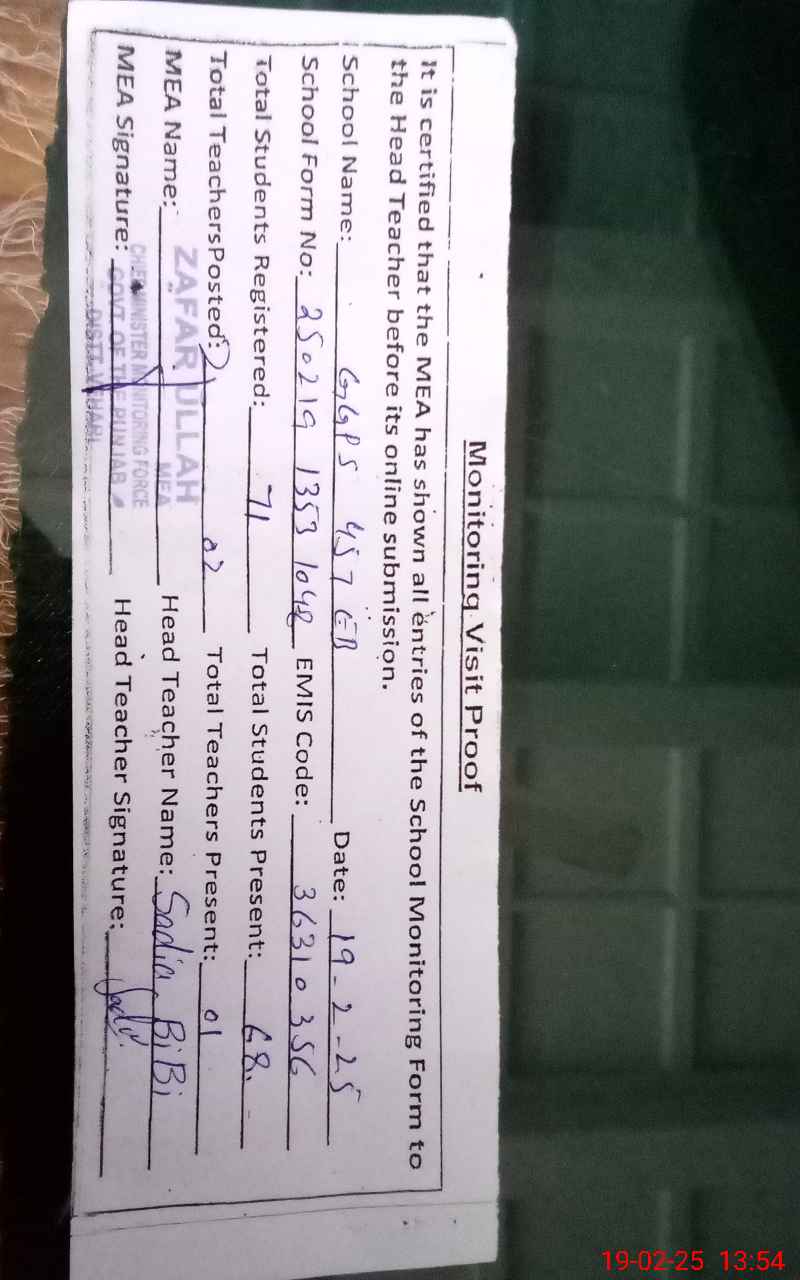 Monitoring Visit Proof
It is certified that the MEA has shown all entries of the School Monitoring Form to
the Head Teacher before its online submission.
School Name: GGPS 457 EB Date: 19-2-25
School Form No: 250219 1353 1048 EMIS Code: 36310356
Total Students Registered: 71 Total Students Present: 68.
Total TeachersPosted: 02 Total Teachers Present: 01
MEA Name: ZAFAR ULLAH Head Teacher Name: Sadia BiBi
MEA
CHIEF MINISTER MONITORING FORCE
MEA Signature: GOVT OF THE PUNJAB Head Teacher Signature: Sadia
DISTT VEHARI
19-02-25 13:54